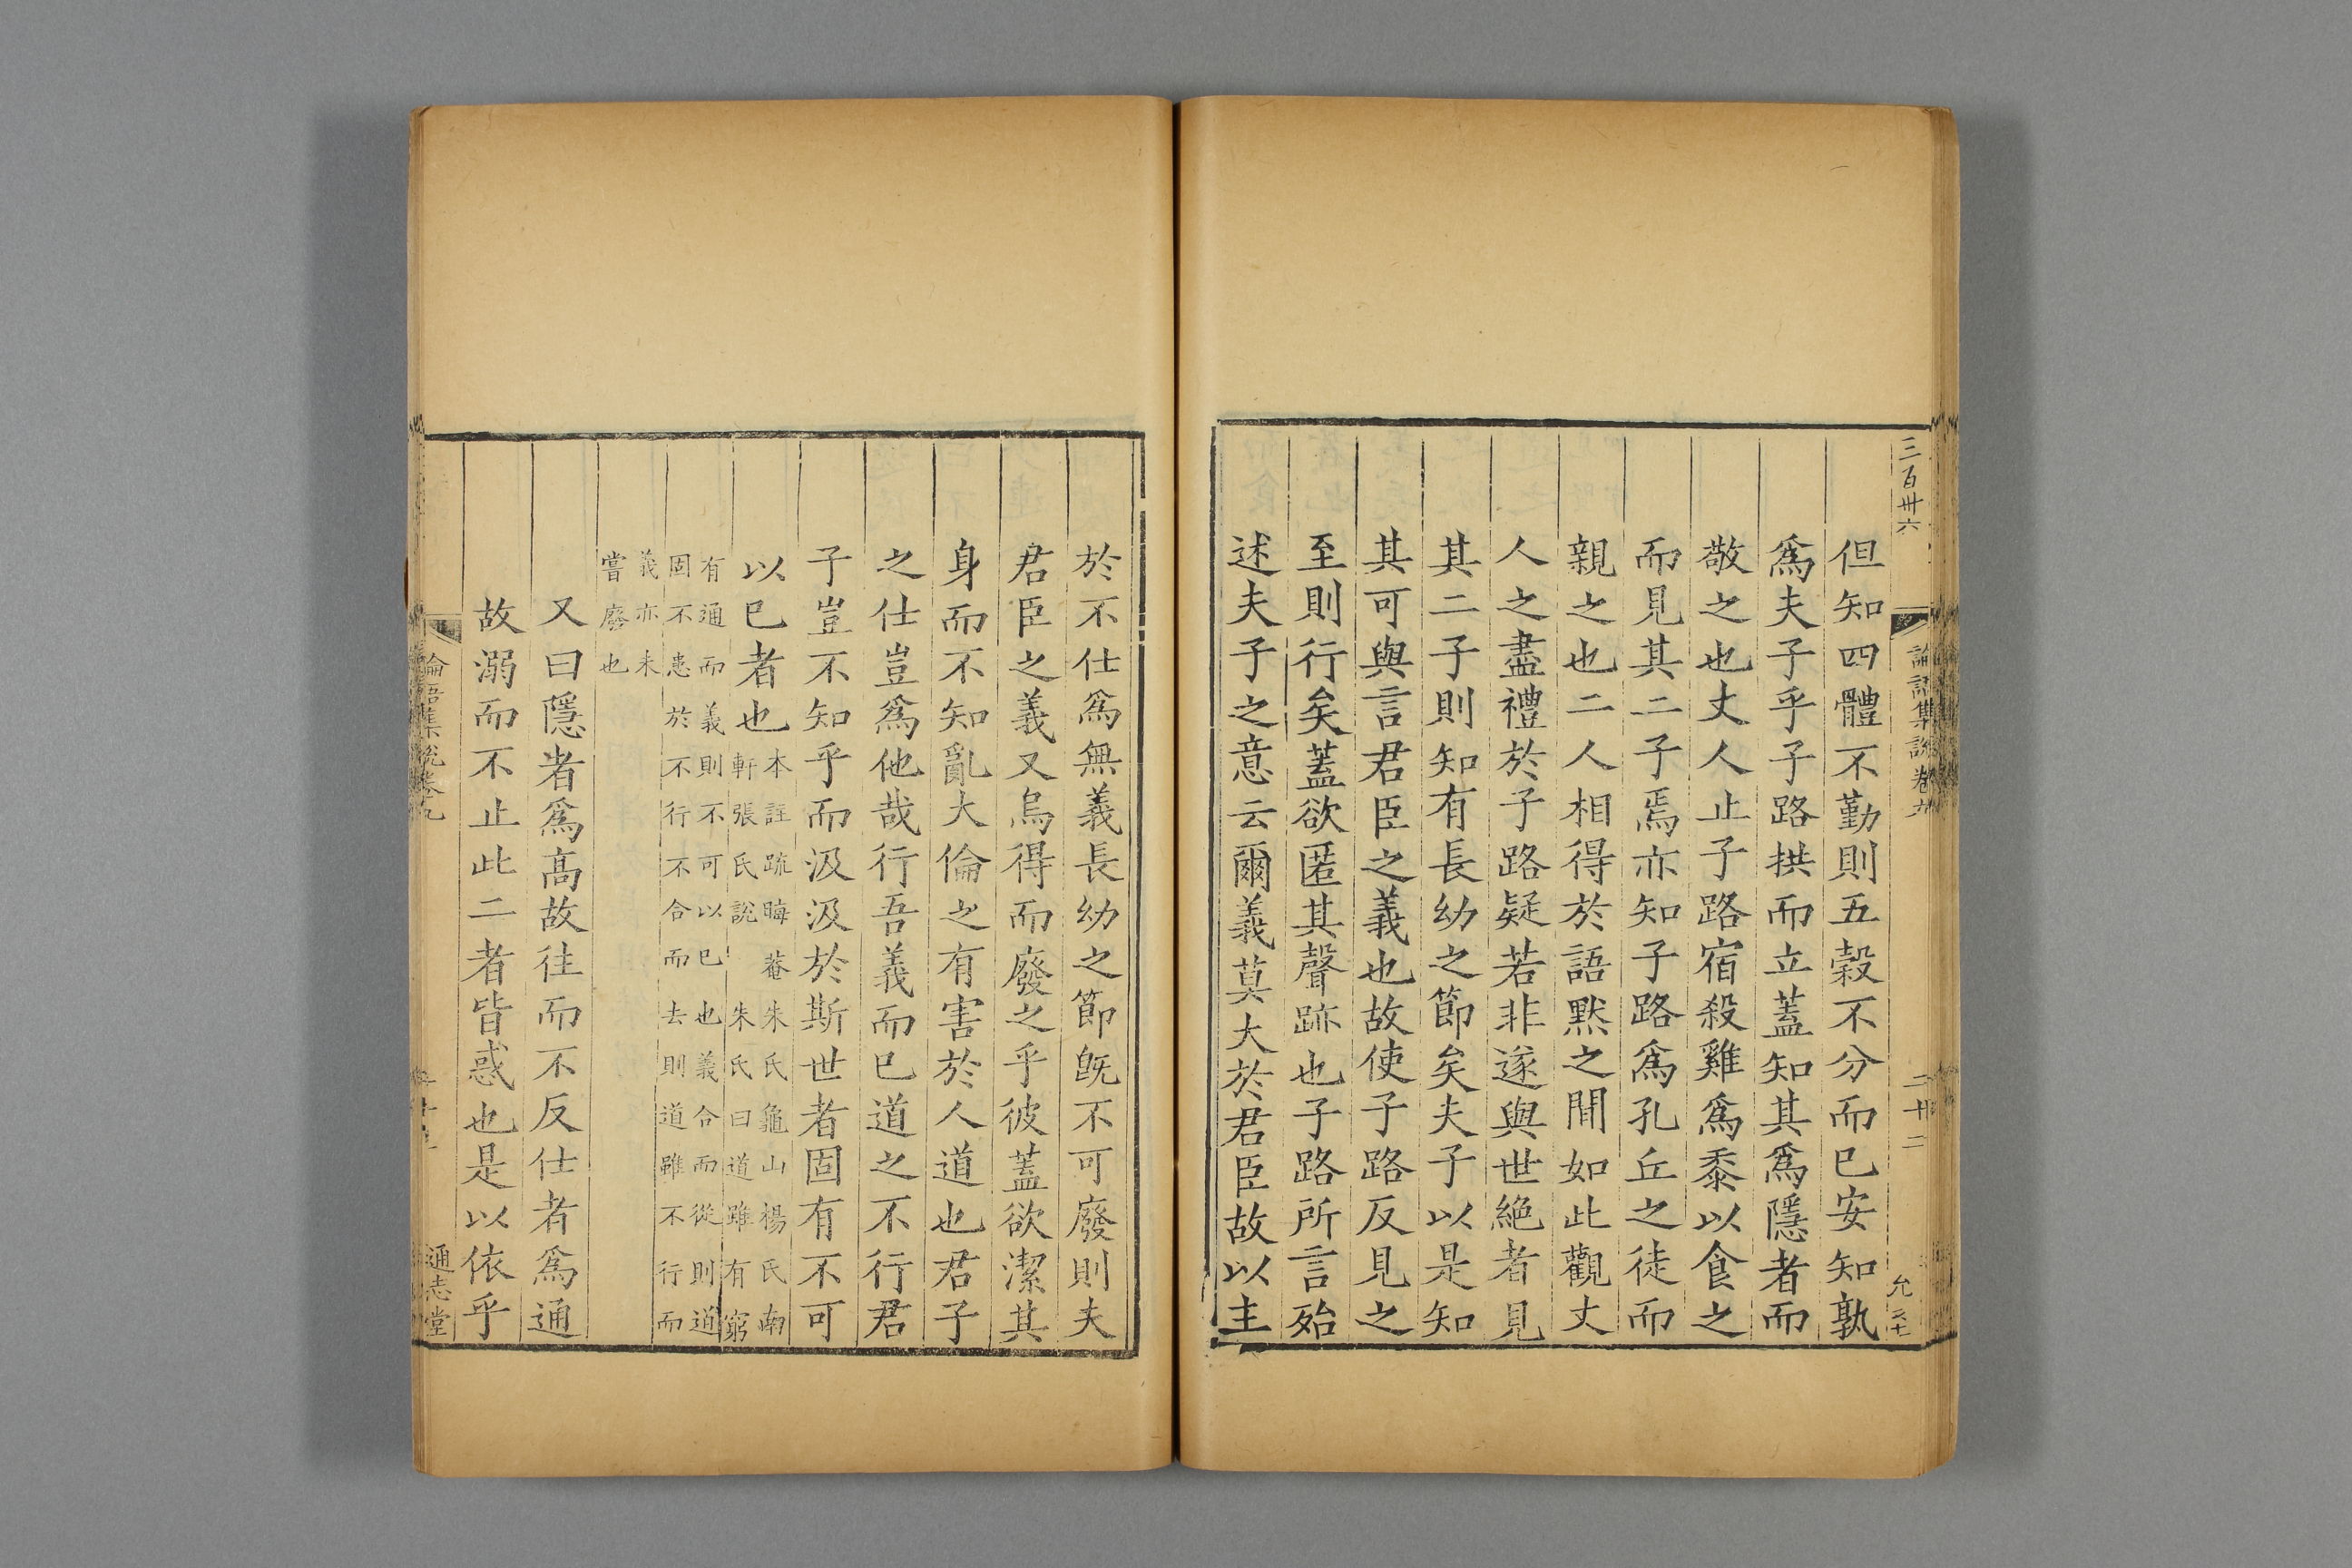 三百卅六
論語集說卷九
二十二
但知四體不勤則五穀不分而已安知孰
爲夫子乎子路拱而立蓋知其爲隱者而
敬之也丈人止子路宿殺雞爲黍以食之
而見其二子焉亦知子路爲孔丘之徒而
親之也二人相得於語黙之間如此觀丈
人之盡禮於子路疑若非遂與世絶者見
其二子則知有長幼之節矣夫子以是知
其可與言君臣之義也故使子路反見之
至則行矣蓋欲匿其聲跡也子路所言殆
述夫子之意云爾義莫大於君臣故以主
於不仕爲無義長幼之節旣不可廢則夫
君臣之義又烏得而廢之乎彼蓋欲潔其
身而不知亂大倫之有害於人道也君子
之仕豈爲他哉行吾義而已道之不行君
子豈不知乎而汲汲於斯世者固有不可
以已者也
本註疏晦菴朱氏龜山楊氏南
軒張氏說 朱氏曰道雖有窮
有通而義則不可以已也義合而從則道
固不患於不行不合而去則道雖不行而
義亦未
嘗廢也
又曰隱者爲高故往而不反仕者爲通
故溺而不止此二者皆惑也是以依乎
論語集說卷九
通志堂